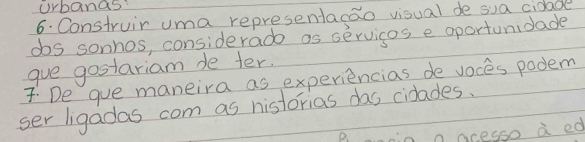 urbanas.
6. Construir uma representação visual de sua cidade
dos sonhos, considerado os serviços e oportunidade
que gostariam de ter.
7. De que maneira as experiências de vocês podem
ser ligadas com as histórias das cidades.
o acesso à ed